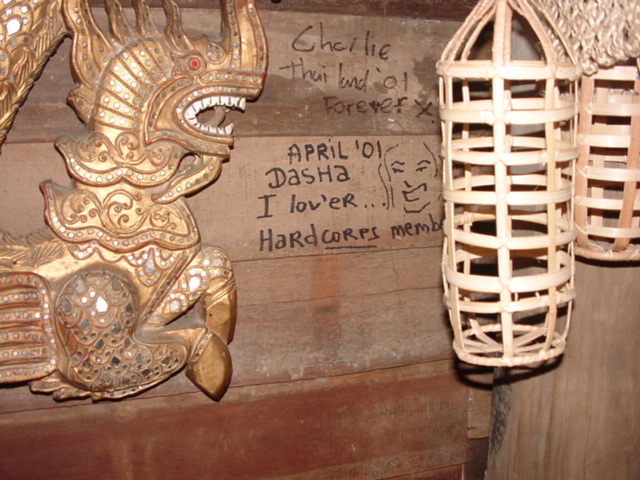 Charlie
Thailand '01
Forever x
APRIL '01
DasHa
I lov'er...
HardCORPS memb